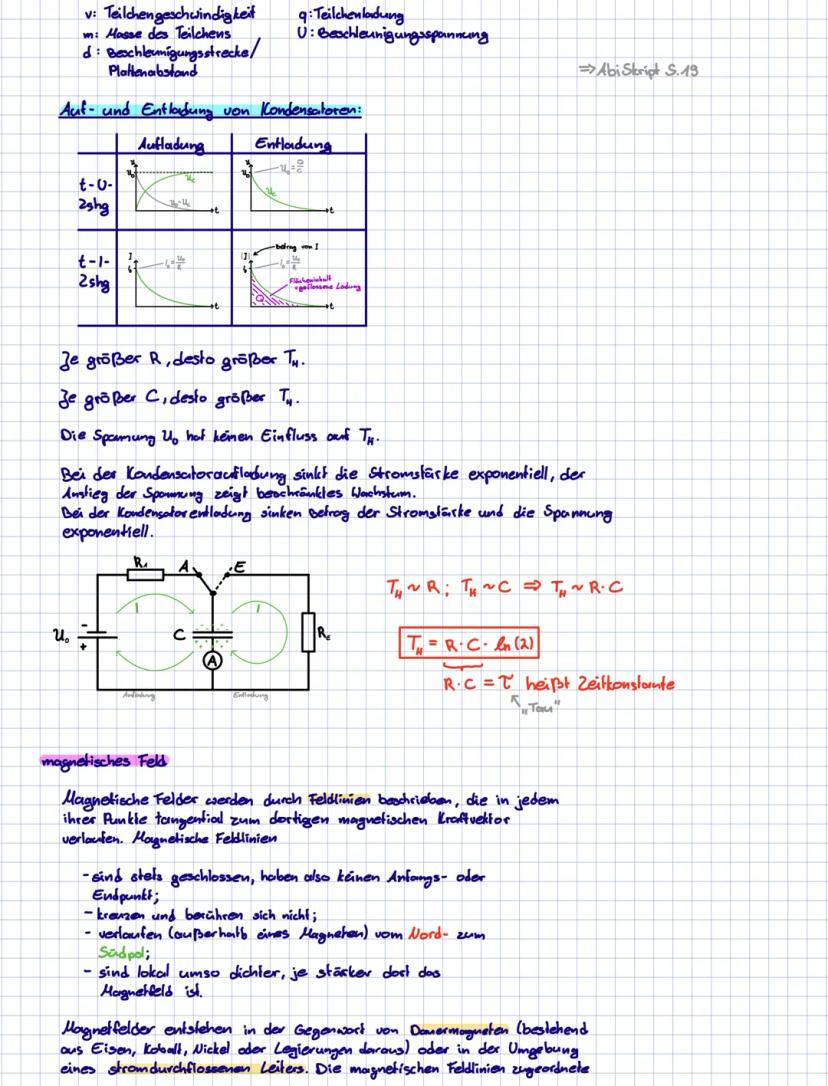 v: Teilchengeschwindigkeit q: Teilchenladung
m: Masse des Teilchens U: Beschleunigungsspannung
d: Beschleunigungsstrecke/
Plattenabstand
⇒ AbiSkript S.19
Auf- und Entladung von Kondensatoren:
Aufladung Entladung
t-U-
Zshg
U
U₀
U_C
U₀-U_C
t
U
U₀
U₀ = Q/C
U_C
t
t-I-
Zshg
I
I₀
I₀ = U₀/R
t
|I|
Betrag von I
I₀
I₀ = U₀/R
Flächeninhalt
= geflossene Ladung
Q
t
Je größer R, desto größer T_H.
Je größer C, desto größer T_H.
Die Spannung U₀ hat keinen Einfluss auf T_H.
Bei der Kondensatoraufladung sinkt die Stromstärke exponentiell, der
Anstieg der Spannung zeigt beschränktes Wachstum.
Bei der Kondensatorentladung sinken Betrag der Stromstärke und die Spannung
exponentiell.
R₁ A E
I I
U₀ - + C R₂
A
Aufladung Entladung
T_H ~ R; T_H ~ C ⇒ T_H ~ R·C
T_H = R·C·ln(2)
R·C = τ heißt Zeitkonstante
"Tau"
magnetisches Feld
Magnetische Felder werden durch Feldlinien beschrieben, die in jedem
ihrer Punkte tangential zum dortigen magnetischen Kraftvektor
verlaufen. Magnetische Feldlinien
- sind stets geschlossen, haben also keinen Anfangs- oder
Endpunkt;
- kreuzen und berühren sich nicht;
- verlaufen (außerhalb eines Magneten) vom Nord- zum
Südpol;
- sind lokal umso dichter, je stärker dort das
Magnetfeld ist.
Magnetfelder entstehen in der Gegenwart von Dauermagneten (bestehend
aus Eisen, Kobalt, Nickel oder Legierungen daraus) oder in der Umgebung
eines stromdurchflossenen Leiters. Die magnetischen Feldlinien zugeordnete